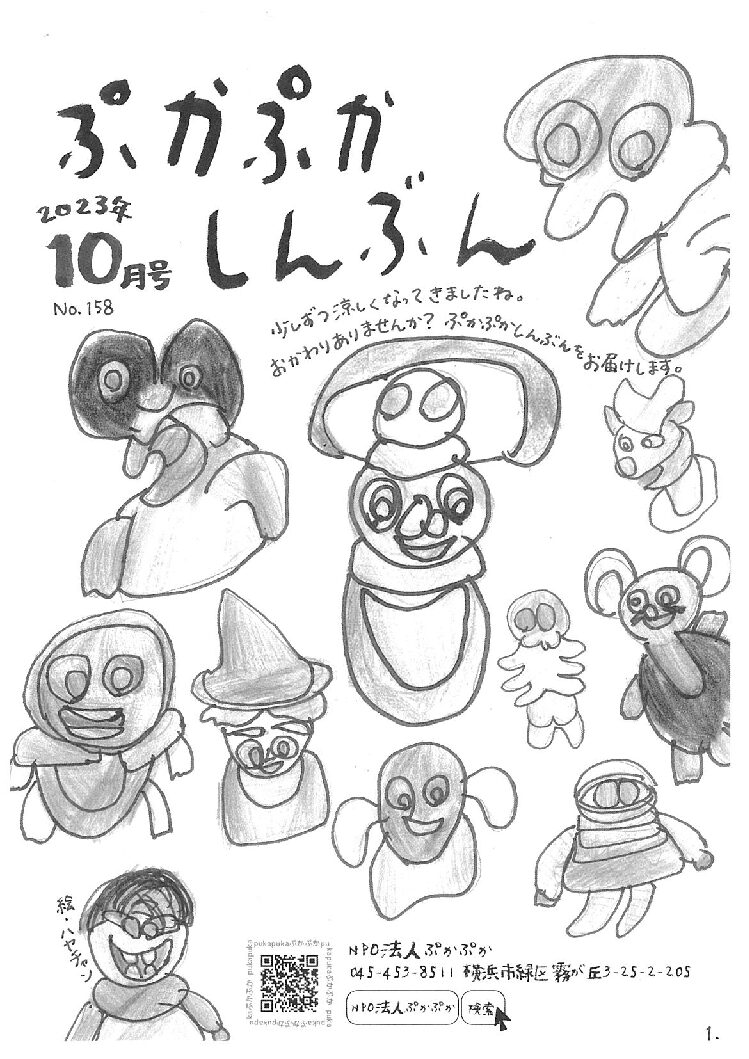 ぷかぷか
しんぶん
2023年
10月号
No.158
少しずつ涼しくなってきましたね。
おかわりありませんか？ ぷかぷかしんぶんをお届けします。
絵・ハヤチャン
pukapukaぷかぷか
NPO法人ぷかぷか
045-453-8511 横浜市緑区霧が丘3-25-2-205
NPO法人ぷかぷか 検索
1.